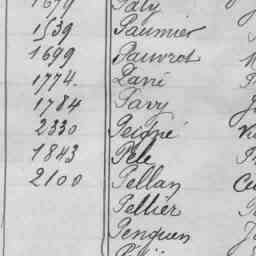 1679 Paty
1539 Paumier
1699 Pauvrot
1774 Pavié
1784 Pavy
2330 Peigné
1843 Pélé
2100 Pellan
Pellier
Penguen